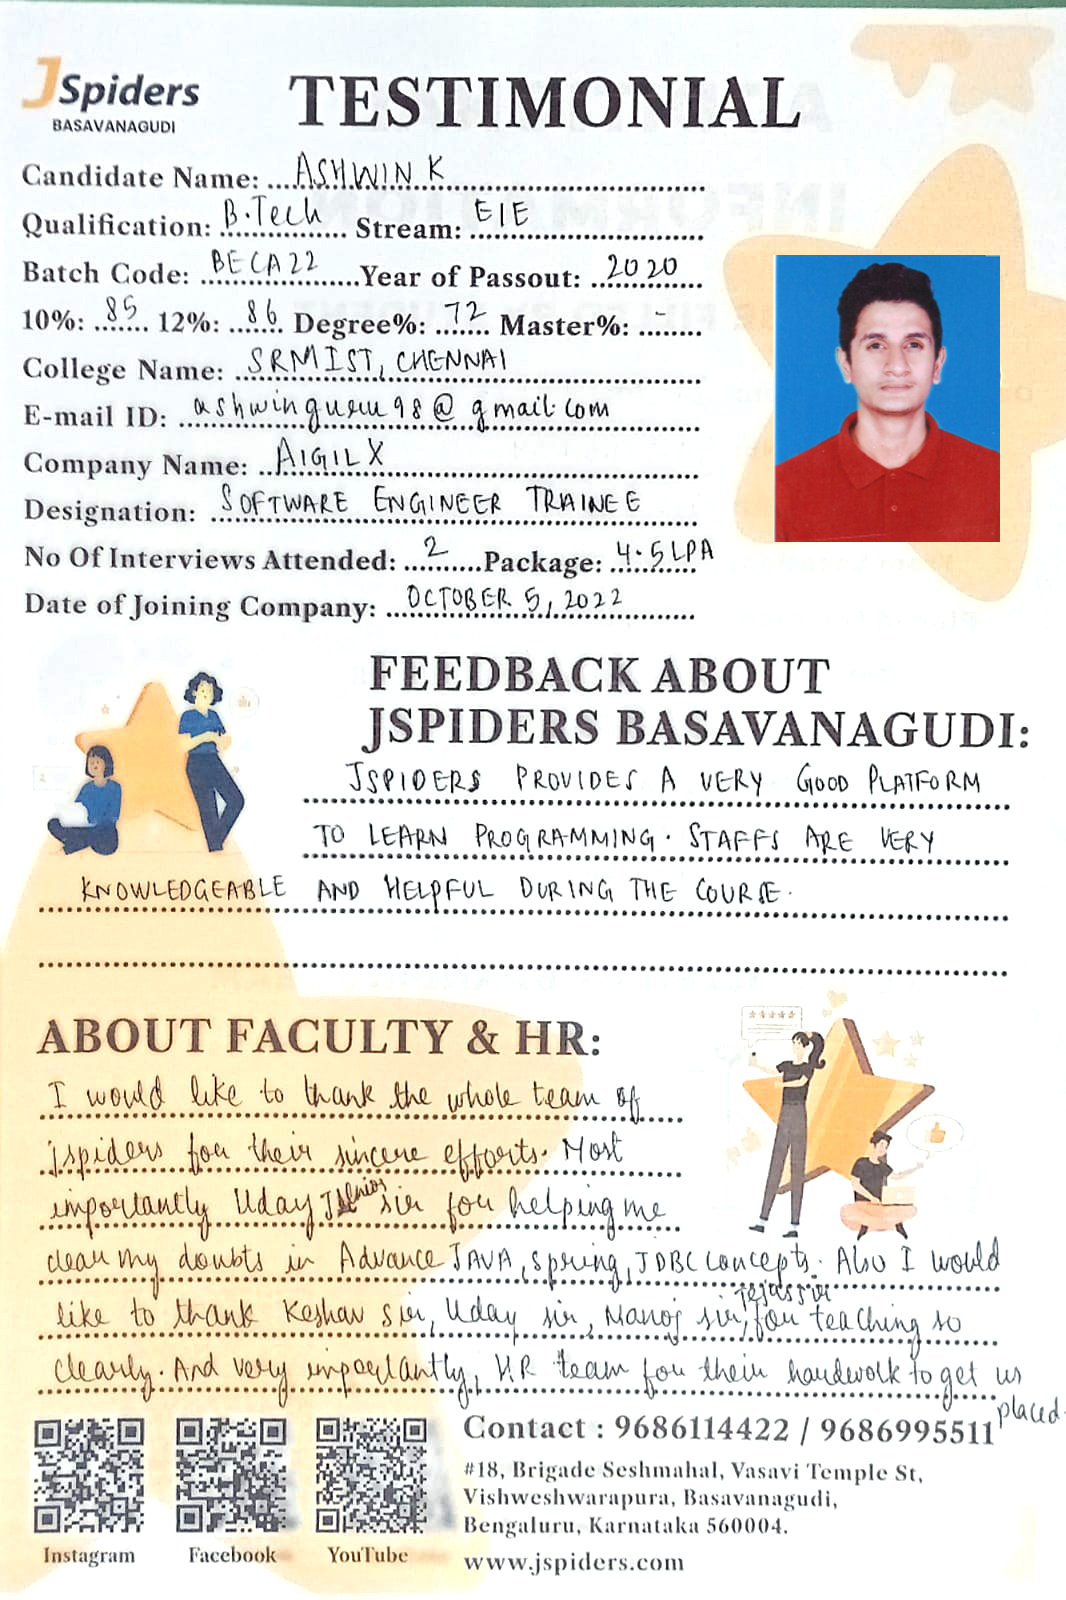 JSpiders
BASAVANAGUDI
TESTIMONIAL
Candidate Name: ASHWIN K
Qualification: B.Tech Stream: EIE
Batch Code: BECA22 Year of Passout: 2020
10%: 85 12%: 86 Degree%: 72 Master%: -
College Name: SRMIST, CHENNAI
E-mail ID: ashwinguru98@gmail.com
Company Name: AIGILX
Designation: SOFTWARE ENGINEER TRAINEE
No Of Interviews Attended: 2 Package: 4.5LPA
Date of Joining Company: OCTOBER 5, 2022
FEEDBACK ABOUT
JSPIDERS BASAVANAGUDI:
JSPIDERS PROVIDES A VERY GOOD PLATFORM
TO LEARN PROGRAMMING. STAFFS ARE VERY
KNOWLEDGEABLE AND HELPFUL DURING THE COURSE.
ABOUT FACULTY & HR:
I would like to thank the whole team of
jspiders for their sincere efforts. Most
importantly Uday sir for helping me
clear my doubts in Advance JAVA, spring, JDBC concepts. Also I would
like to thank Keshav sir, Uday sir, Manoj sir, Tejas sir for teaching so
clearly. And very importantly, HR team for their hardwork to get us
placed.
Contact : 9686114422 / 9686995511
#18, Brigade Seshmahal, Vasavi Temple St,
Vishweshwarapura, Basavanagudi,
Bengaluru, Karnataka 560004.
www.jspiders.com
Instagram
Facebook
YouTube